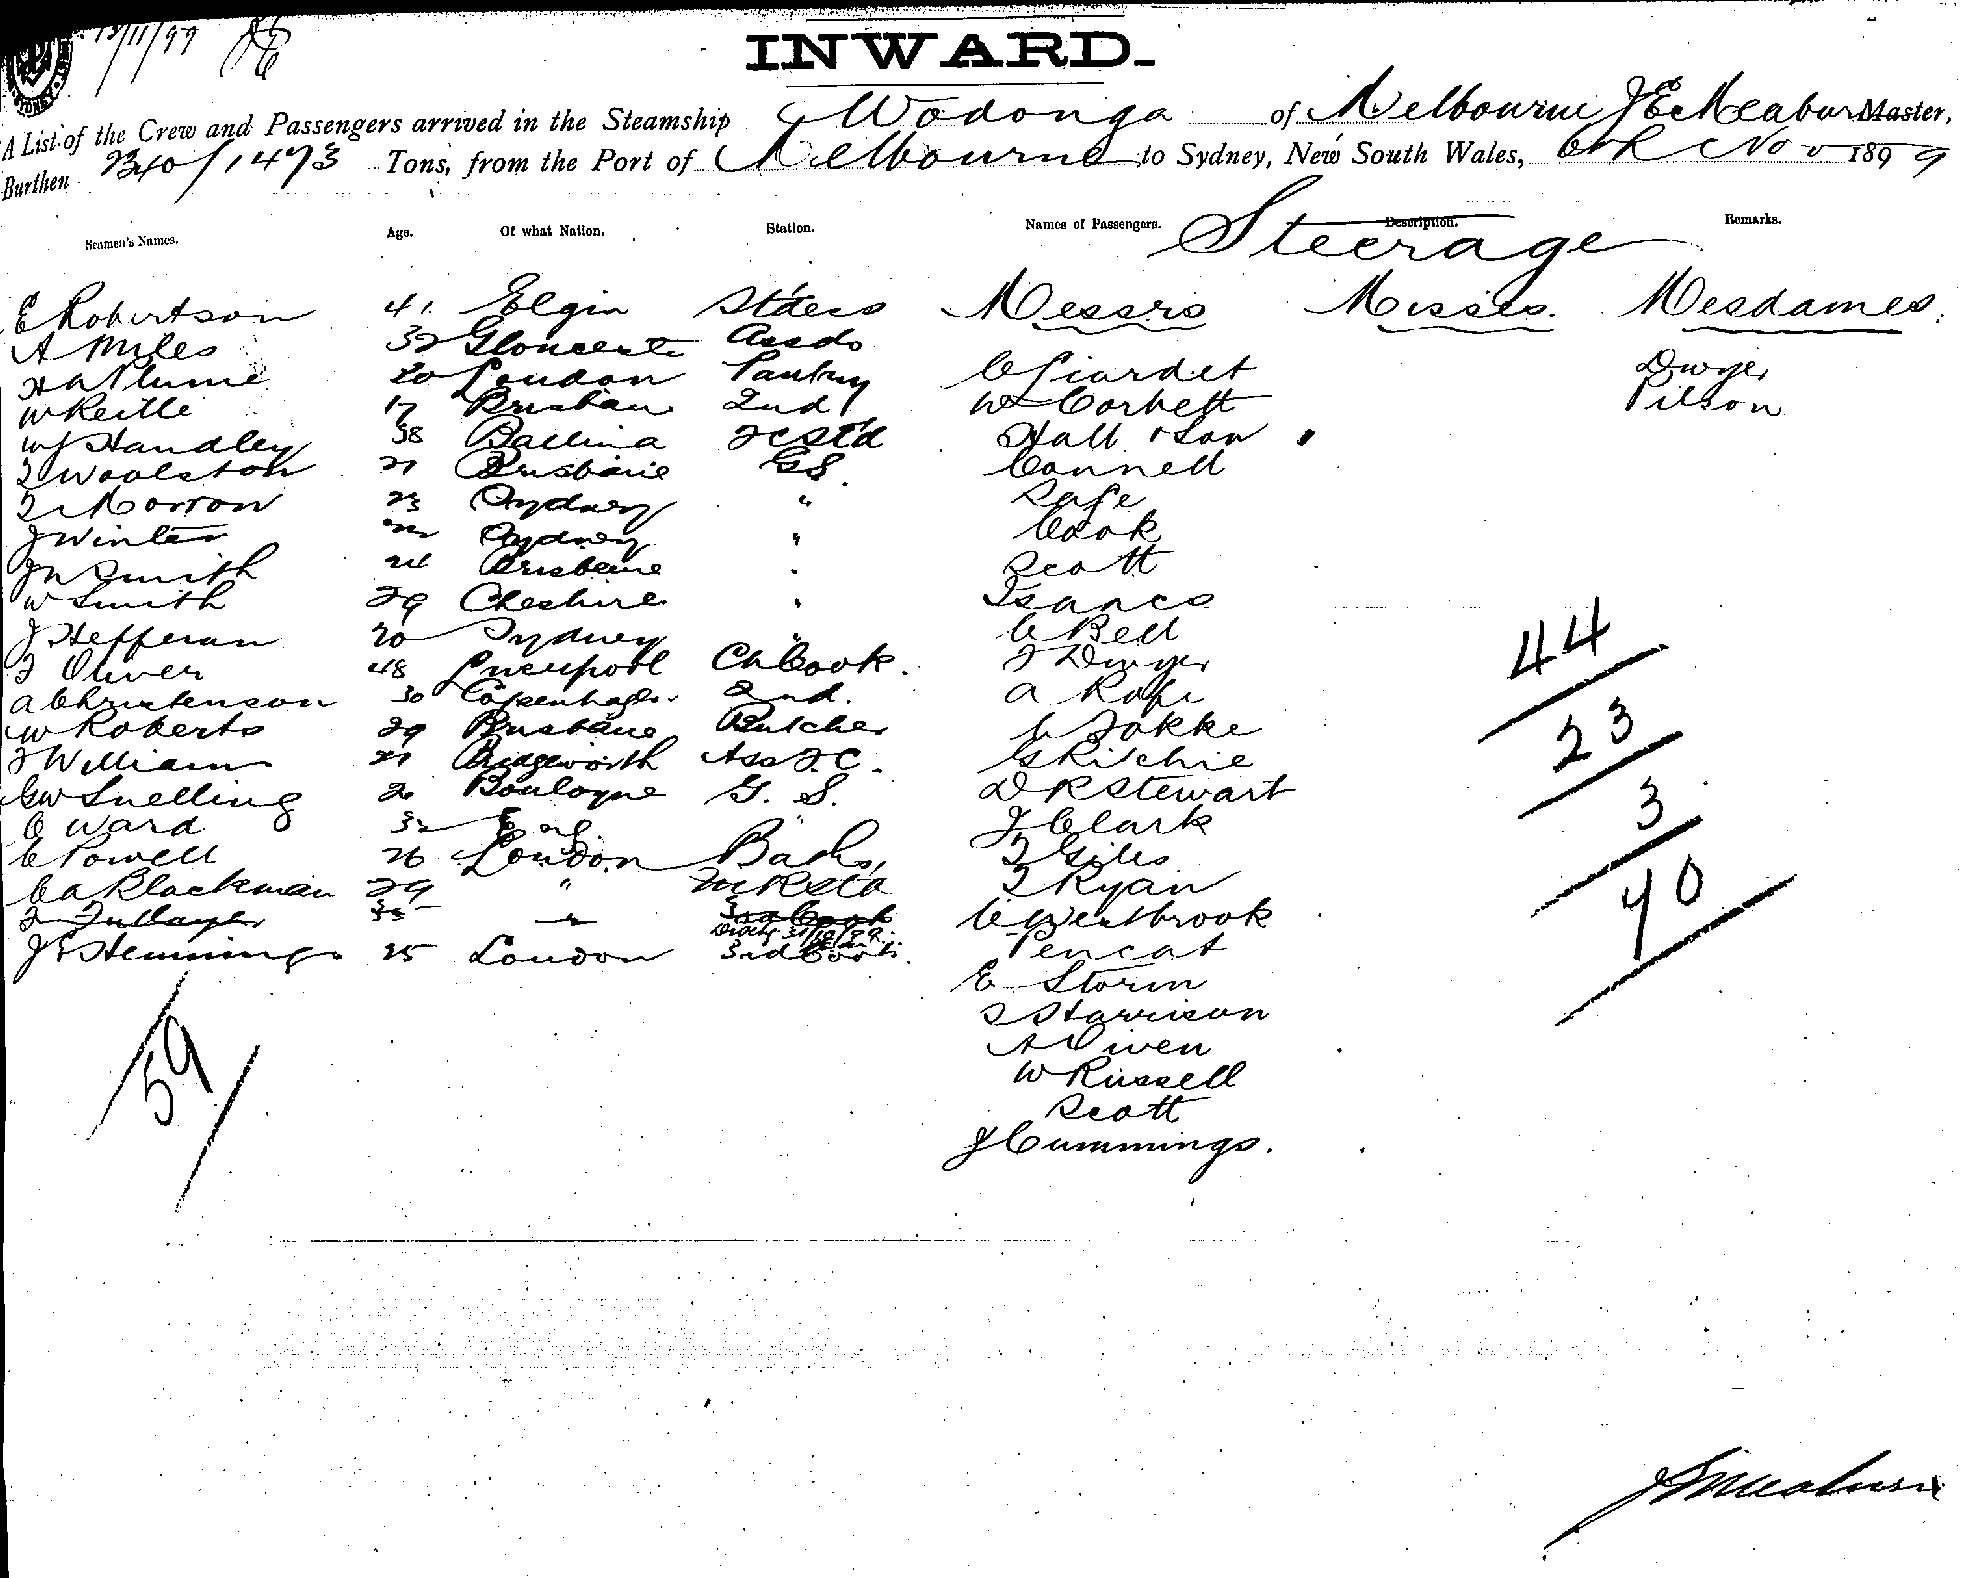 13/11/99
INWARD.
A List of the Crew and Passengers arrived in the Steamship Wodonga of Melbourne Master,
Burthen 2340/1473 Tons, from the Port of Melbourne to Sydney, New South Wales, 6th Nov 1899
Seamen's Names. Age. Of what Nation. Station. Names of Passengers. Description. Remarks.
Steerage
E Robertson 41 Elgin Messrs Misses. Mesdames.
A Miles 32
H A Plume 20 London Pantry C Girardet Dwyer
W Keille 17 Brisban 2nd W Corbett Pilson
W J Handley 38 Ballina Hall & Son
Woolston 21 Brisbane G S Connell
Morrow 23 Sydney " Rafe
J Winter 22 Sydney " Cook
J N Smith 24 Brisbane " Scott
W Smith 29 Cheshire " Isaacs
J Heffernan 20 Sydney " C Bell
Oliver 48 Liverpool Ch Cook. Dwyer
A Christenson 30 Copenhagen 2nd. A
W Roberts 29 Brisbane Butcher Fokke
Williams 21 Bridgeworth G Ritchie
G W Snelling Boulogne G. S. D R Stewart
C Ward 32 Eng J Clark
C Powell 26 London Giles
C A Blackman 29 " Ryan
35 " 3rd Cook C Westbrook
31/10/99
J Hemmings 25 London 3rd Cook Pencat
E Storm
S Harrison
A Owen
W Russell
Scott
J Cummings.
59
44
23
3
70